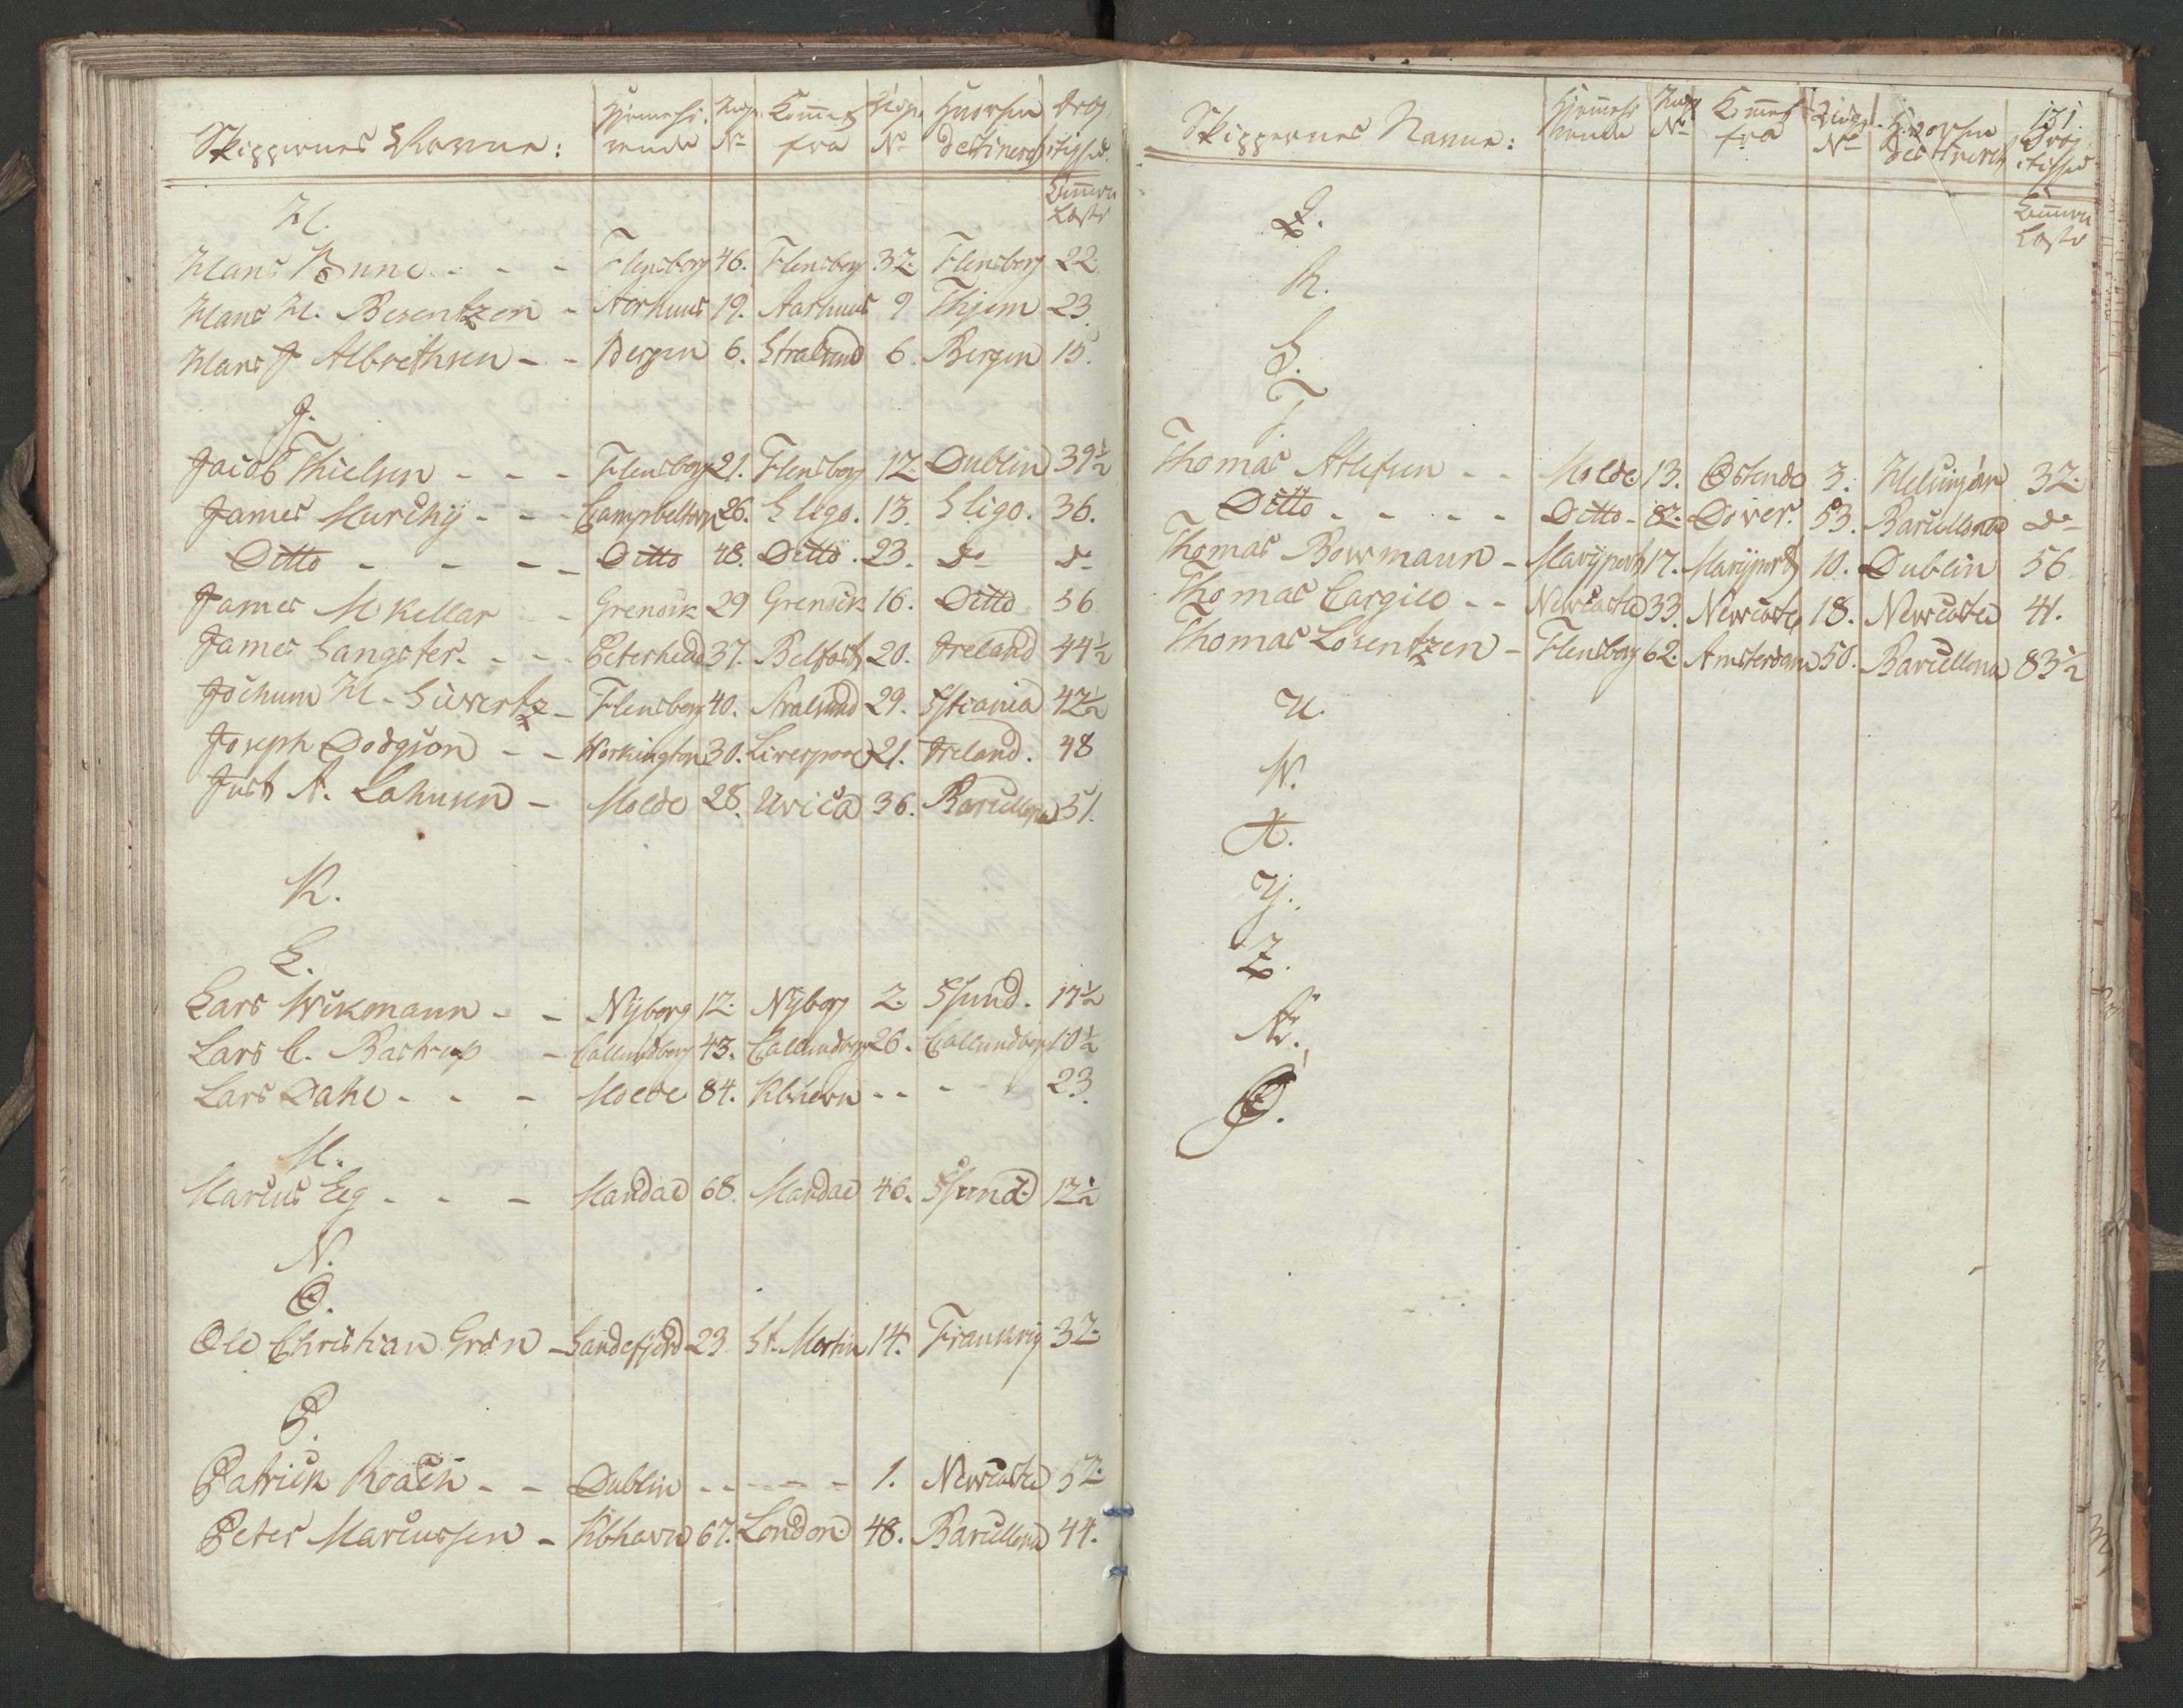 Skippernes Navne: Hjemehö- Indg. Kommet Udg. Hvorhen Dræg-
rende No fra No destineret tighed.
Commerce
Læster
H.
Hans Bune - - - Flensborg 46. Flensborg 32. Flensborg 22.
Hans H. Berentzen - Aarhuus 19. Aarhuus 9. Thjem 23.
Hans J Albrethsen - - Bergen 6. Stralsund 6. Bergen 15.
J.
Jacob Thielsen - - - Flensborg 21. Flensborg 12. Dublin 39½
James Murchy - - - Campbeltown 26. Sligo. 13. Sligo. 36.
Ditto - - - - Ditto 48. Ditto. 23. Do Do
James McKellar - - Grenock 29 Grenock 16. Ditto 56
James Sangster - - - Peterhead 37. Belfast 20. Ireland 44½
Jochum H. Siwertz - Flensborg 40. Stralsund 29. Christiania 42½
Joseph Dodgson - - Workington 30. Liverpool 21. Ireland. 48
Just A. Lahnsen - Molde 28. Uvica 36. Barcellona 51.
K.
L.
Lars Wikmann - - Nyborg 12. Nyborg 2. Chsund. 17½
Lars C. Bastrup - Callundborg 43. Callundborg 26. Callundborg 10½
Lars Dahl - - - Molde 84. Kbhavn - - - 23.
M.
Marcus Eeg - - - Mandal 68. Mandal 46. Chsund. 12½
N.
O.
Ole Christian Grön - Sandefjord 23. St. Martin 14. Frankrig 32.
P.
Patrick Roach - - Dublin - - - - - 1. Newcastle 52.
Peter Marcussen - Kbhavn 67. London. 48. Barcellona 44.
151
Skippernes Navne: Hjemmehö- Indg. Kommet Udg. Hvorhen Dræg-
rende No fra No destineret tighed
Commerce
Læster
Q.
R.
S.
T.
Thomas Atlefsen - - Molde 13. Ostende 3. Helsingör 32.
Ditto - - - - Ditto - 82. Dover. 53. Barcellona Do
Thomas Bowmann - Maryport 17. Maryport 10. Dublin 56
Thomas Cargill - - Newcastle 33. Newcastle 18. Newcastle 41.
Thomas Lorentzen - Flensborg 62. Amsterdam 50. Barcellona 83½
U.
W.
X.
Y.
Z.
Æ.
Ø.